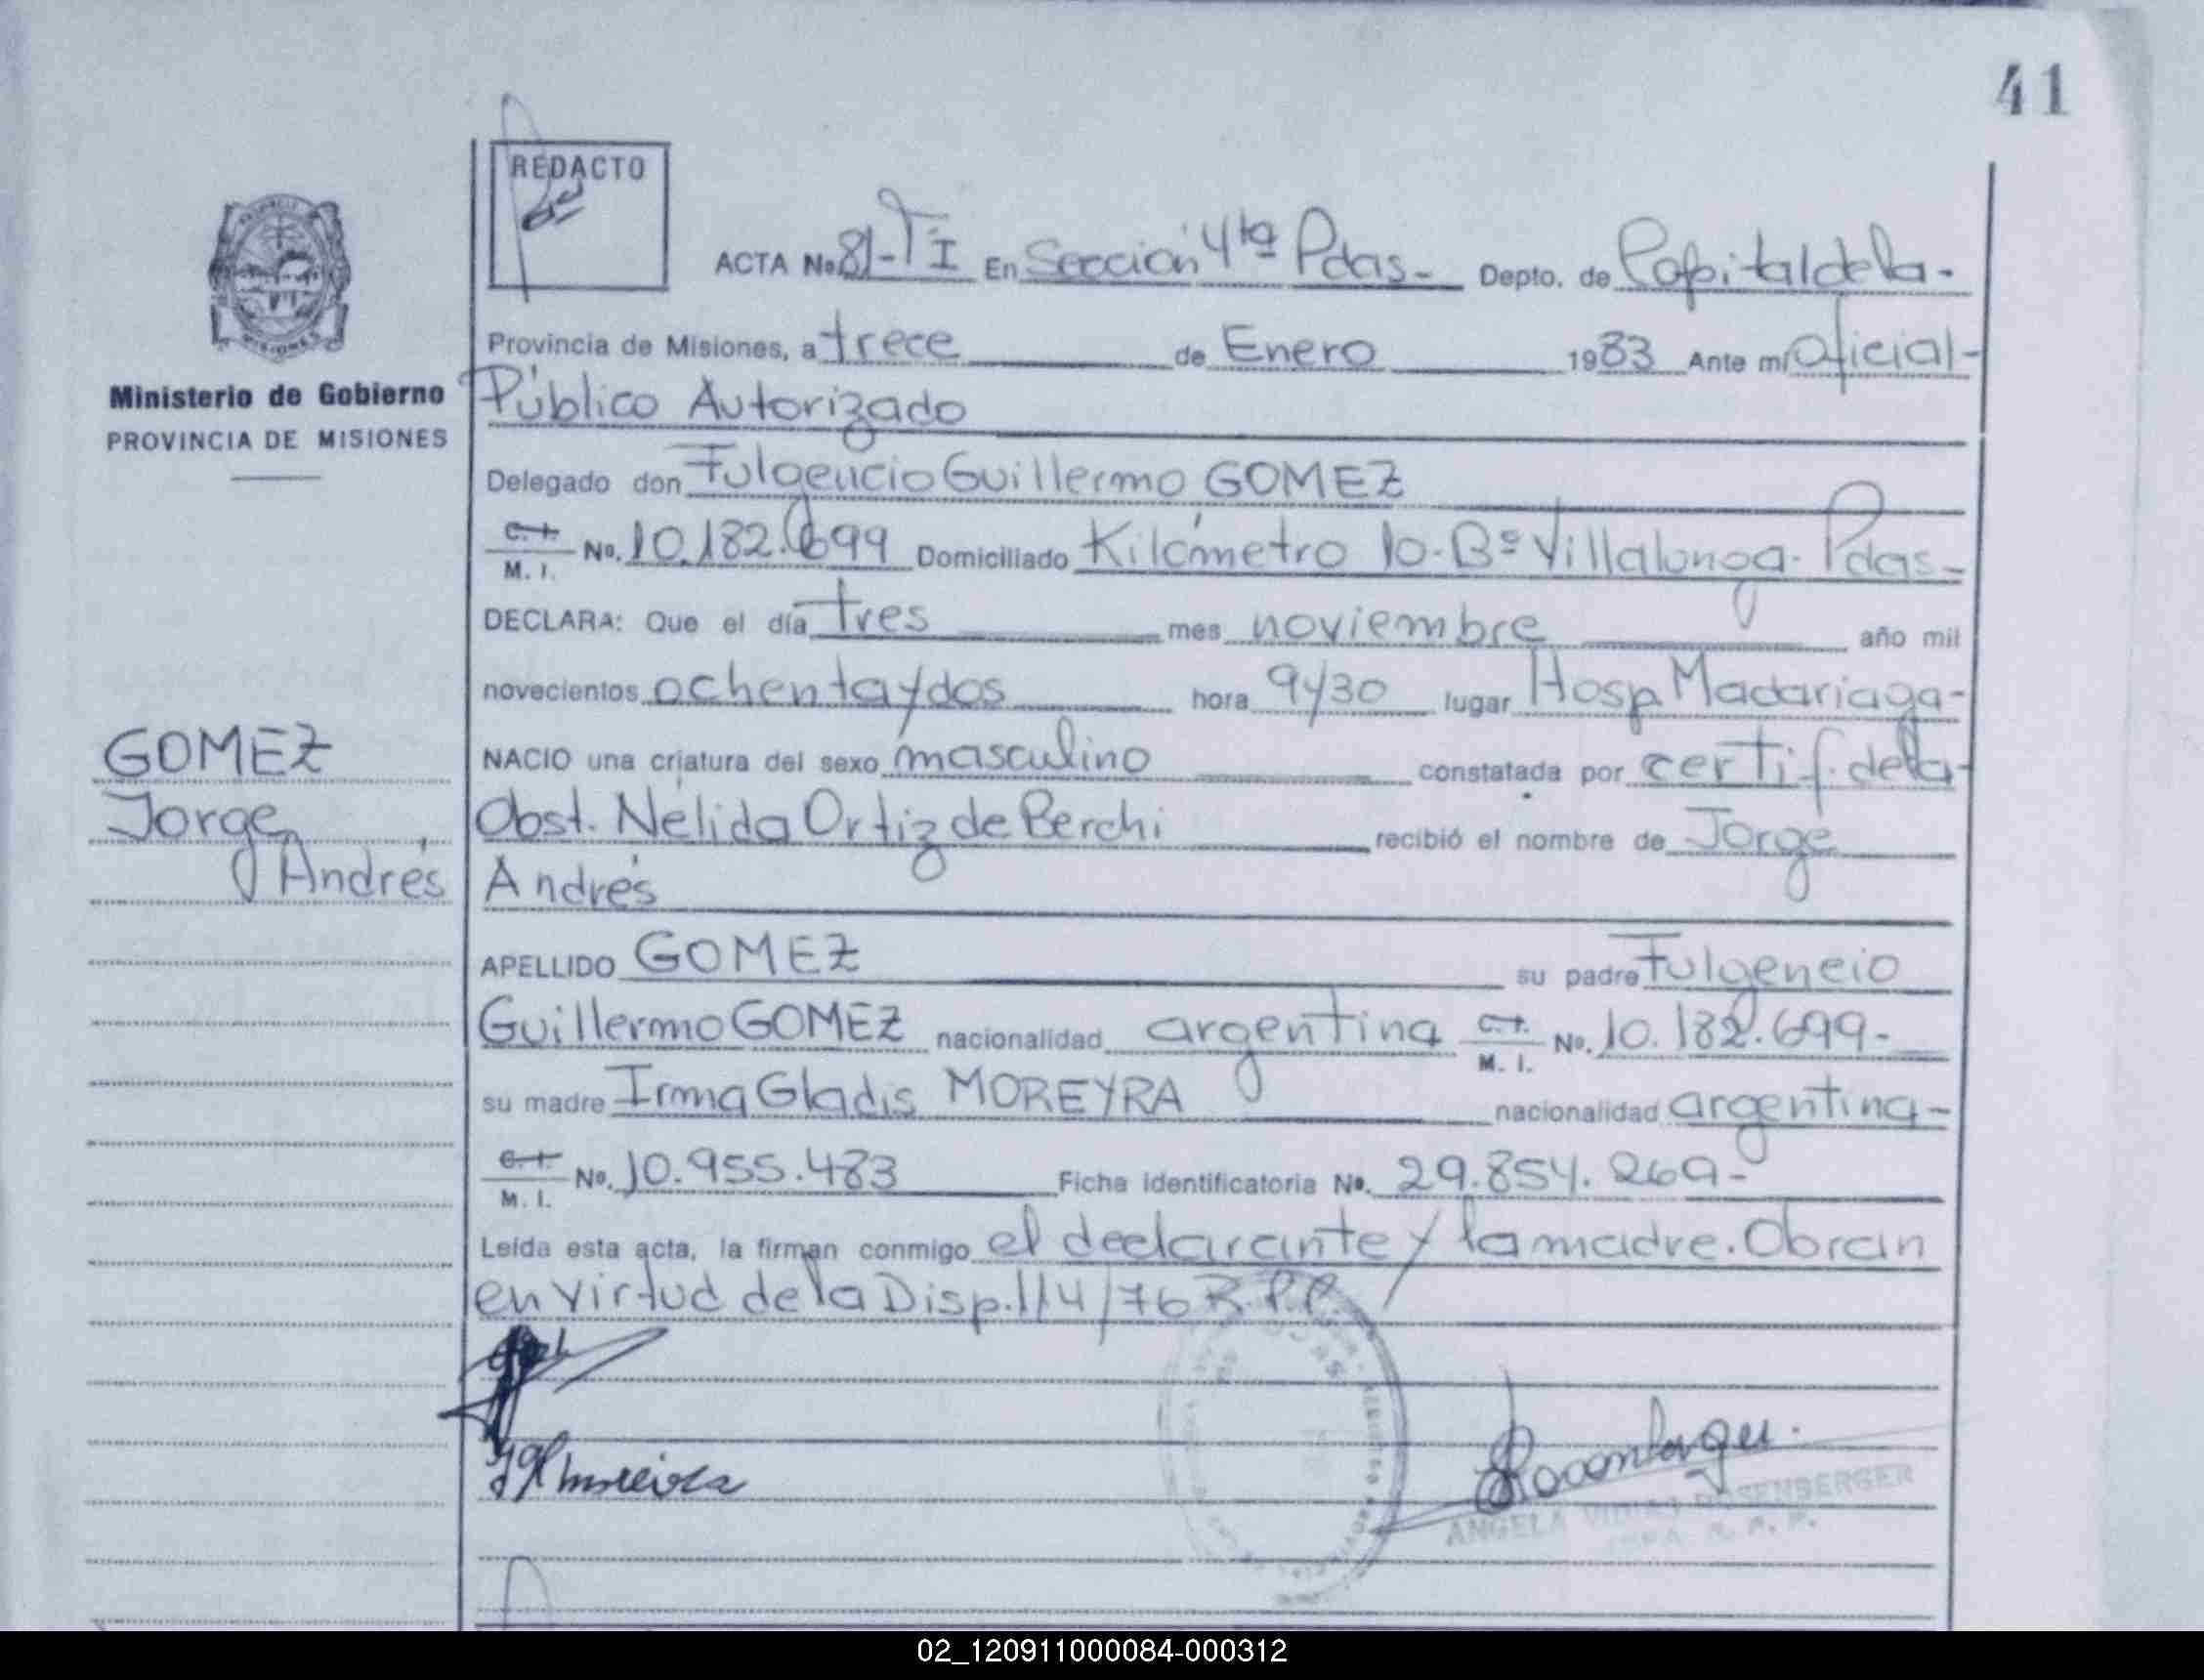 41
REDACTO
ACTA No. 81-TºI En Sección 4ta Pdas- Depto. de Capital de la-
Provincia de Misiones, a trece de Enero 1983 Ante mí Oficial-
Ministerio de Gobierno
Público Autorizado
PROVINCIA DE MISIONES
Delegado don Fulgencio Guillermo GOMEZ
C. I. M. I. No. 10.182.699 Domiciliado Kilómetro 10-Bº Villalonga-Pdas-
DECLARA: Que el día tres mes noviembre año mil
novecientos ochenta y dos hora 9y30 lugar Hosp Madariaga-
GOMEZ
NACIO una criatura del sexo masculino constatada por certif. de la-
Jorge
Obst. Nélida Ortiz de Berchi recibió el nombre de Jorge
Andrés
Andrés
APELLIDO GOMEZ su padre Fulgencio
Guillermo GOMEZ nacionalidad argentina C. I. M. I. No. 10.182.699-
su madre Irma Gladis MOREYRA nacionalidad argentina-
C. I. M. I. No. 10.955.483 Ficha identificatoria No. 29.854.269-
Leída esta acta, la firman conmigo el declarante y la madre. Obran
en virtud de la Disp. 114/76 R.P.P.
ANGELA ROSENBERGER
02_120911000084-000312